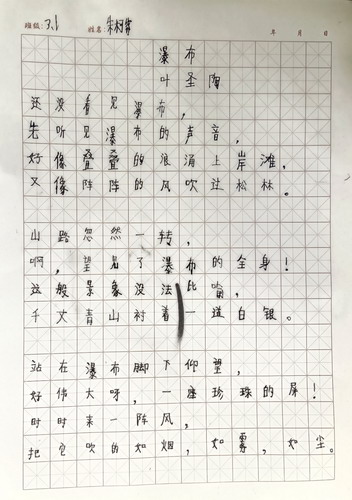 班级：3.1 姓名：朱 年 月 日
瀑布
叶圣陶
还没看见瀑布，
先听见瀑布的声音，
好像叠叠的浪涌上岸滩，
又像阵阵的风吹过松林。
山路忽然一转，
啊，望见了瀑布的全身！
这般景象没法比喻，
千丈青山衬着一道白银。
站在瀑布脚下仰望，
好伟大呀，一座珍珠的屏！
时时来一阵风，
把它吹的如烟，如雾，如尘。